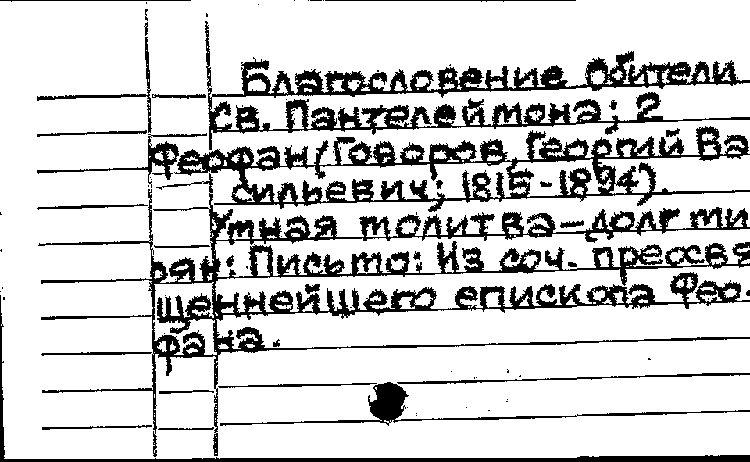 Благословение Обители
Св. Пантелеймона; 2
Феофан (Говоров, Георгий Ва
сильевич; 1815-1894).
Умная молитва – долг ми
рян: Письмо: Из соч. преосвя
щеннейшего епископа Фео-
фана.